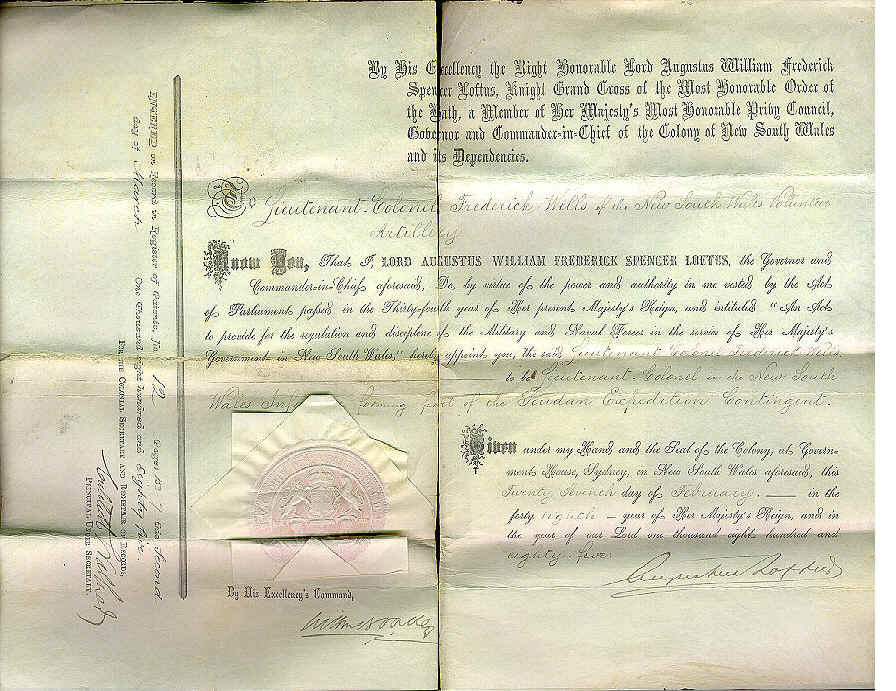 By His Excellency the Right Honorable Lord Augustus William Frederick
Spencer Loftus, Knight Grand Cross of the Most Honorable Order of
the Bath, a Member of Her Majesty's Most Honorable Privy Council,
Governor and Commander-in-Chief of the Colony of New South Wales
and its Dependencies.
To Lieutenant-Colonel Frederick Wells of the New South Wales Volunteer
Artillery
Know You, That I, LORD AUGUSTUS WILLIAM FREDERICK SPENCER LOFTUS, the Governor and
Commander-in-Chief aforesaid, Do, by virtue of the power and authority in me vested by the Act
of Parliament passed in the Thirty-fourth year of Her present Majesty's Reign, and intituled "An Act
to provide for the regulation and discipline of the Military and Naval Forces in the service of Her Majesty's
Government in New South Wales," hereby appoint you, the said Lieutenant Colonel Frederick Wells
to be Lieutenant Colonel in the New South
Wales forming part of the Soudan Expedition Contingent.
Given under my Hand and the Seal of the Colony, at Govern-
ment House, Sydney, in New South Wales aforesaid, this
Twenty Seventh day of February. — in the
forty eighth — year of Her Majesty's Reign, and in
the year of our Lord one thousand eight hundred and
eighty-five.
Augustus Loftus
By His Excellency's Command,
ENTERED on Record in Register of Patents, No. 12 Page 153 this Second
day of March One Thousand eight hundred and Eighty five.
FOR THE COLONIAL SECRETARY AND REGISTRAR OF RECORDS,
PRINCIPAL UNDER SECRETARY.